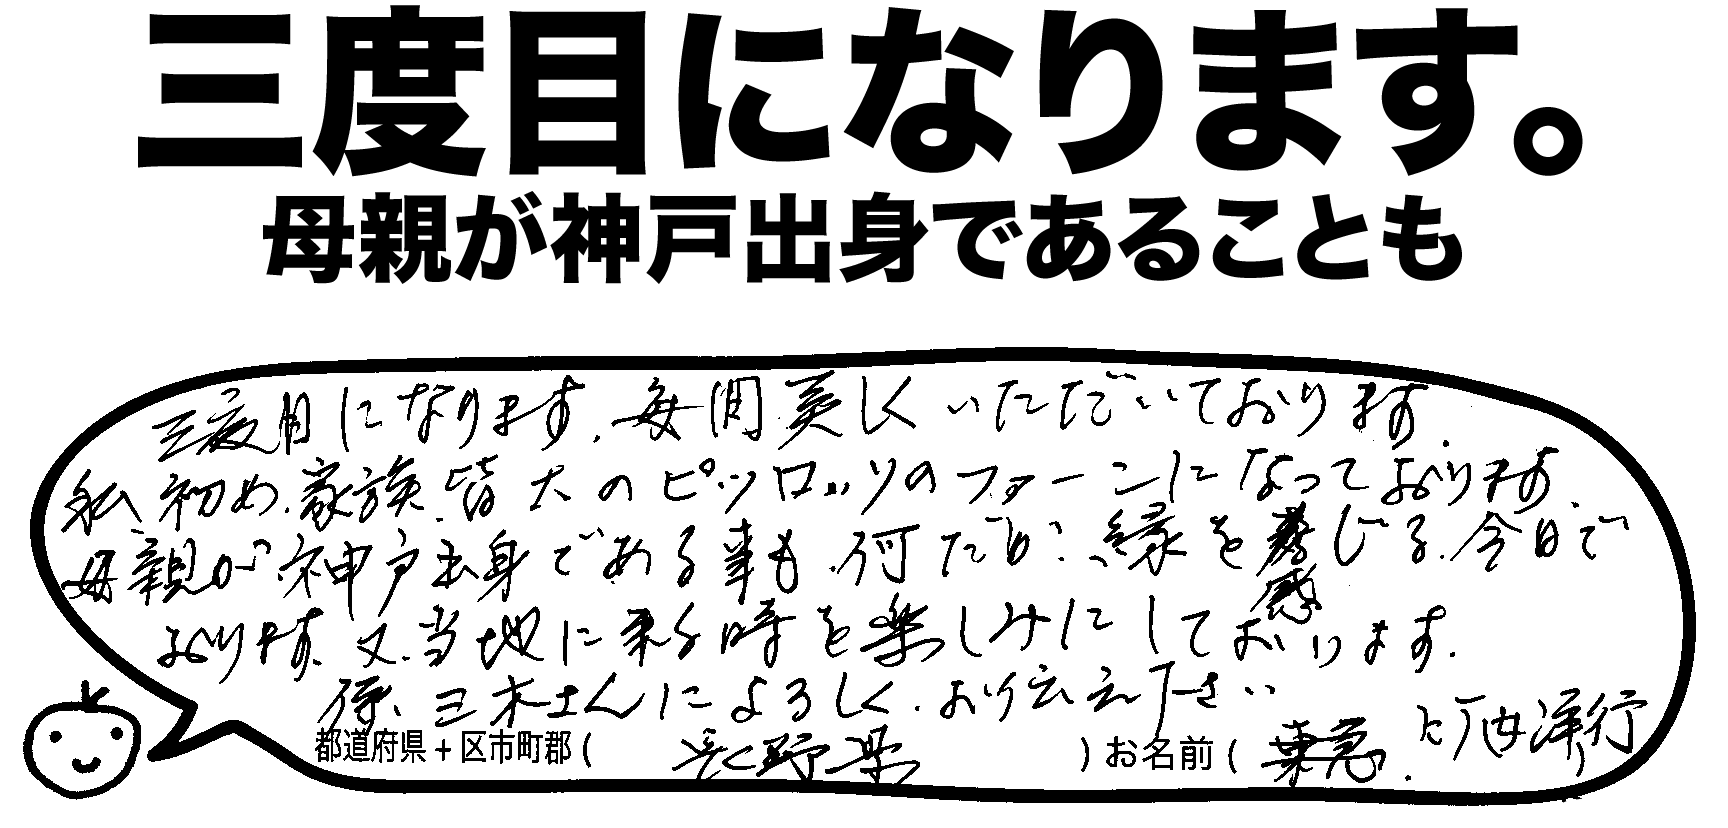 三度目になります。
母親が神戸出身であることも
三度目になります。毎回美しくいただいております。
私初め、家族、皆大のピッロッツのファーンになっております。
母親が神戸出身である事も、何だか、縁を感じる、今日で
おります。又、当地に来る時を楽しみにしております。
三木さんによろしく、お伝え下さい
都道府県+区市町郡( 長野県 )お名前( 東急. 洋行